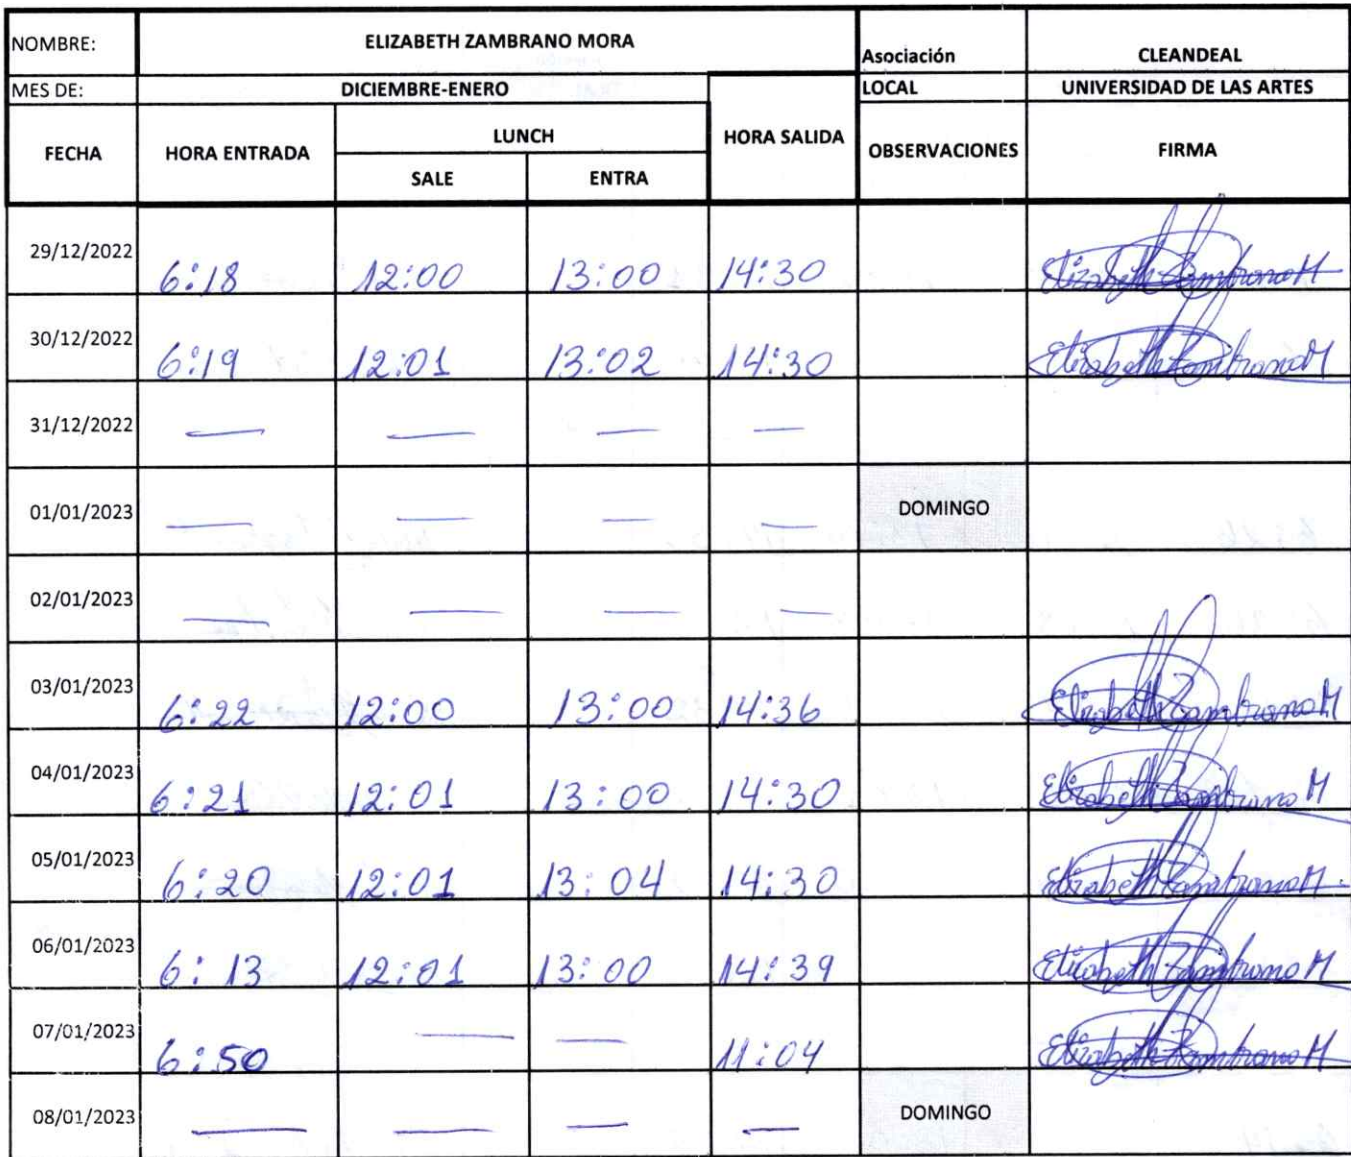 NOMBRE: ELIZABETH ZAMBRANO MORA Asociación CLEANDEAL
MES DE: DICIEMBRE-ENERO LOCAL UNIVERSIDAD DE LAS ARTES
FECHA HORA ENTRADA LUNCH HORA SALIDA OBSERVACIONES FIRMA
SALE ENTRA
29/12/2022 6:18 12:00 13:00 14:30 Elizabeth Zambrano M
30/12/2022 6:19 12:01 13:02 14:30 Elizabeth Zambrano M
31/12/2022 — — — —
01/01/2023 — — — — DOMINGO
02/01/2023 — — — —
03/01/2023 6:22 12:00 13:00 14:36 Elizabeth Zambrano M
04/01/2023 6:21 12:01 13:00 14:30 Elizabeth Zambrano M
05/01/2023 6:20 12:01 13:04 14:30 Elizabeth Zambrano M
06/01/2023 6:13 12:01 13:00 14:39 Elizabeth Zambrano M
07/01/2023 6:50 — — 11:04 Elizabeth Zambrano M
08/01/2023 — — — — DOMINGO